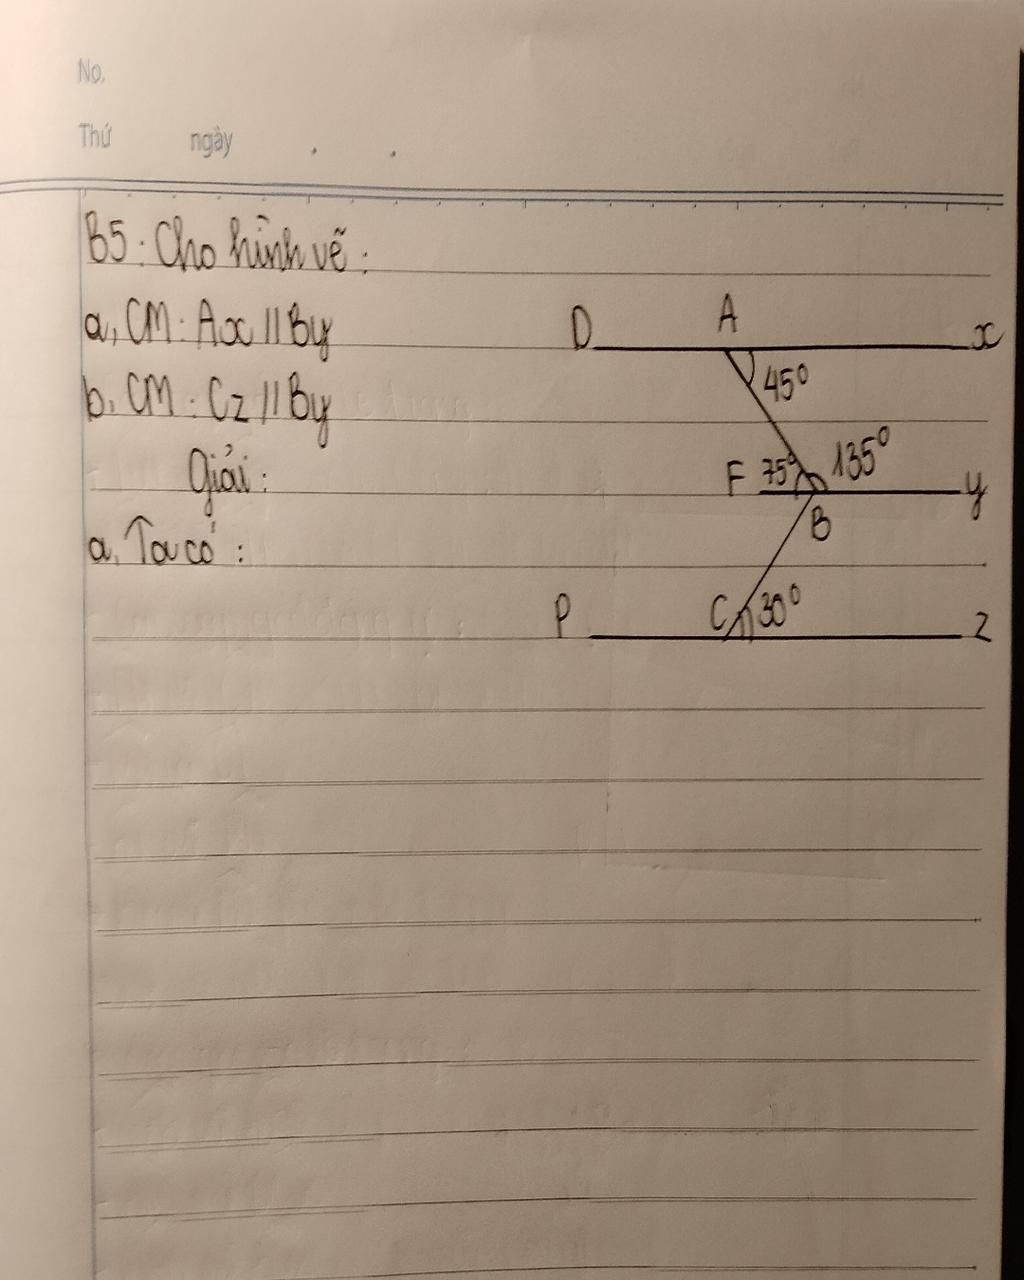 No.
Thứ ngày . .
B5: Cho hình vẽ:
a, CM: Ax // By
b, CM: Cz // By
Giải:
a, Ta có:
D A x
45°
F 75° 135° y
B
P C 30° z